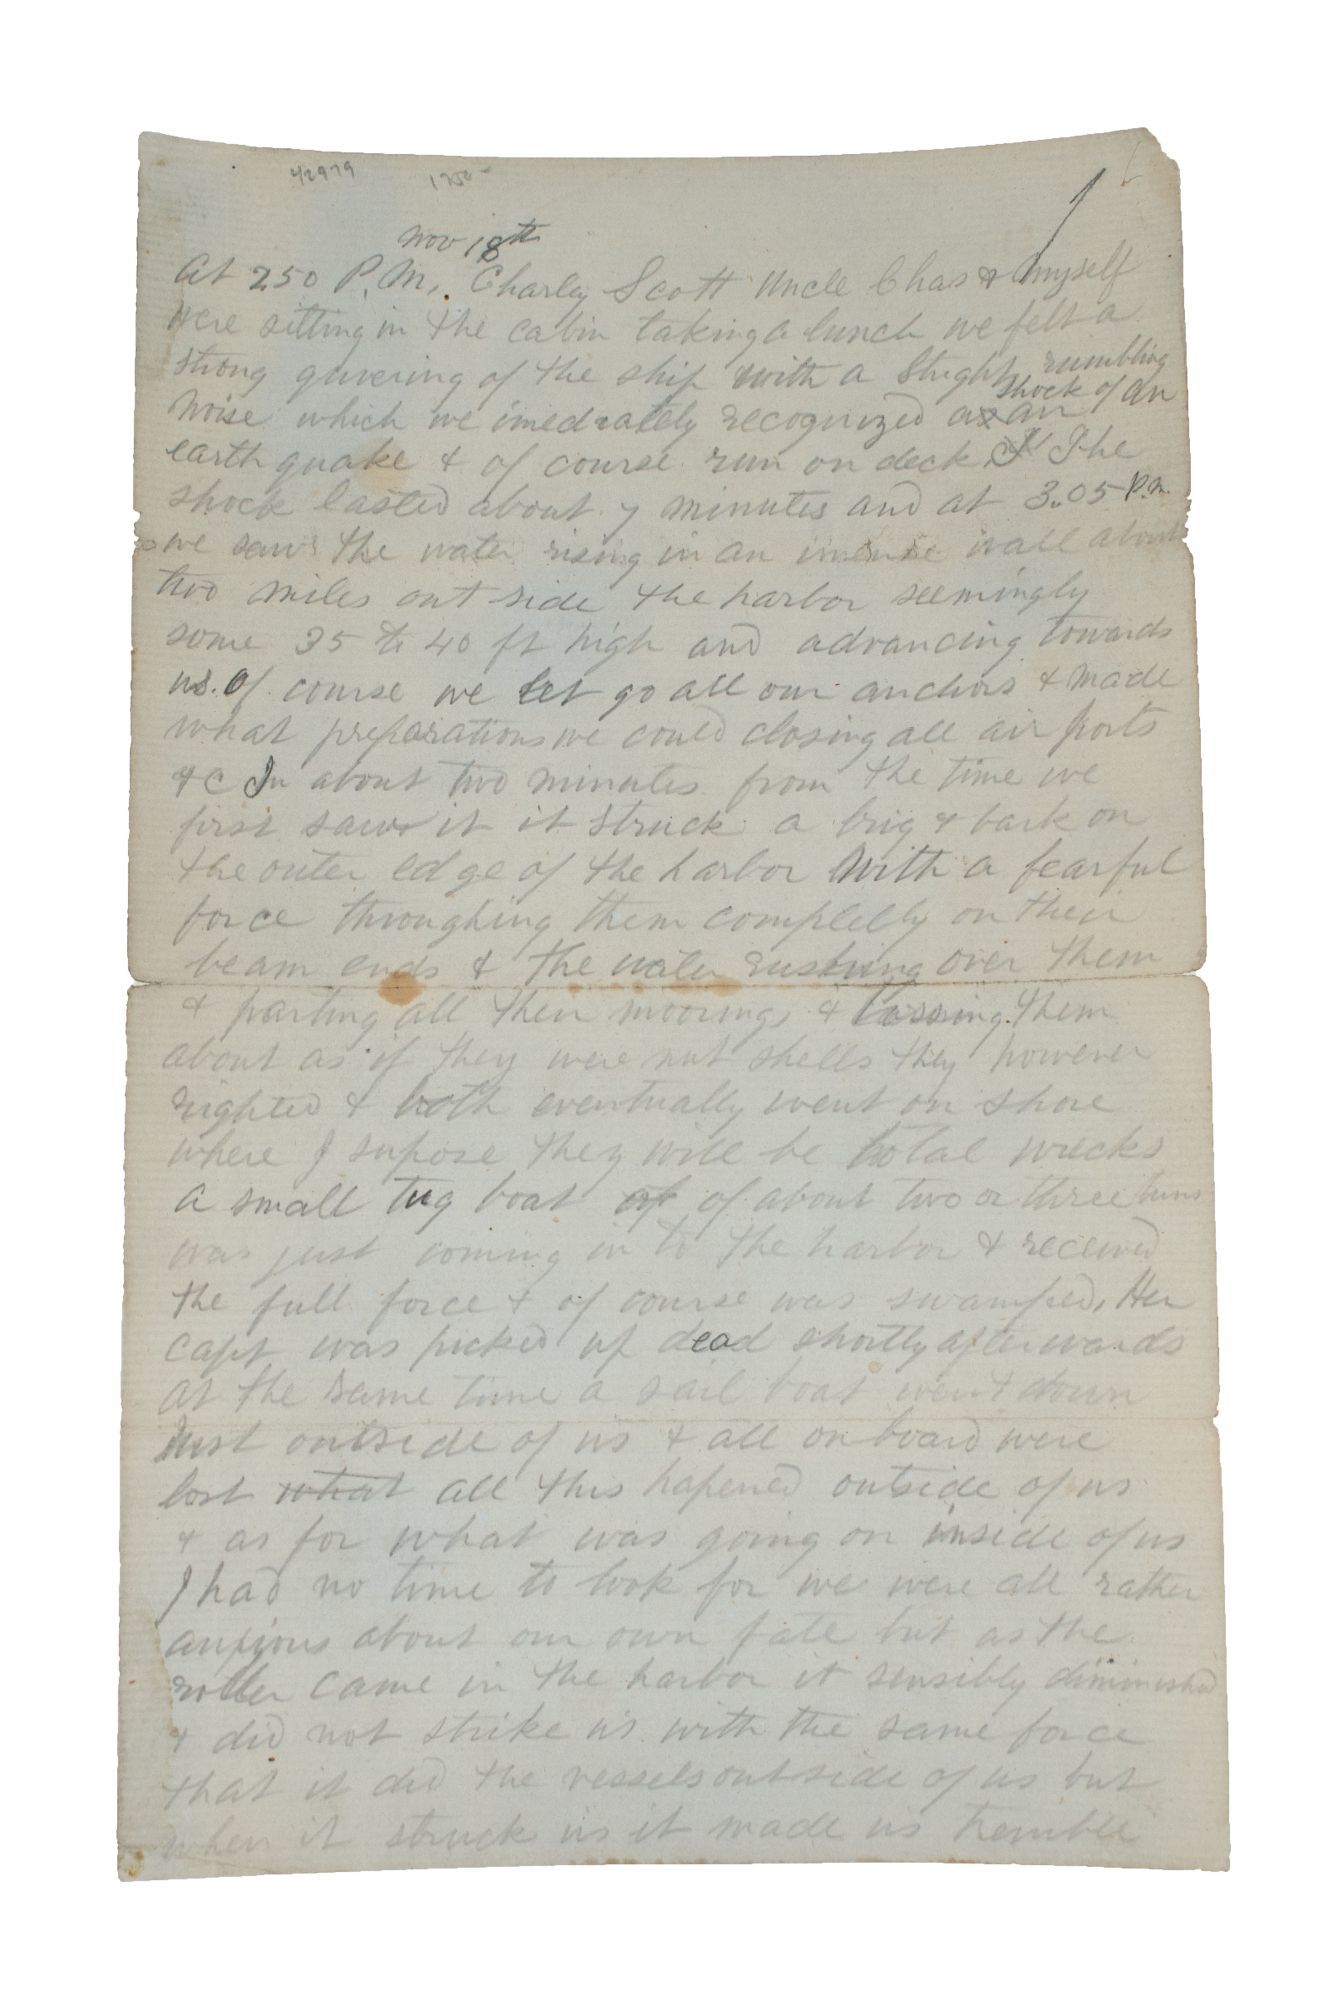 42979 1750-
Nov 18th
At 2.50 P.M. Charley Scott Uncle Chas & myself
were sitting in the cabin taking a lunch we felt a
strong quvering of the ship with a slight rumbling
shock of an
noise which we imediately recognized as an
earth quake & of course run on deck The
shock lasted about 7 minutes and at 3.05 P.M.
we saw the water rising in an imense wall about
two miles out side the harbor seemingly
some 35 to 40 ft high and advancing towards
us. Of course we let go all our anchors & made
what preparations we could closing all air ports
&c In about two minutes from the time we
first saw it it struck a brig & bark on
the outer edge of the harbor with a fearful
force throughing them completly on their
beam ends & the water rushing over them
& parting all their moorings & tossing them
about as if they were nut shells they however
righted & both eventually went on shore
where I supose they will be total wrecks
a small tug boat of of about two or three tuns
was just coming in to the harbor & received
the full force & of course was swamped, Her
capt was picked up dead shortly afterwards
at the same time a sail boat went down
Just outside of us & all on board were
lost what all this hapened outside of us
& as for what was going on inside of us
I had no time to look for we were all rather
anxious about our own fate but as the
roller came in the harbor it sensibly diminished
& did not strike us with the same force
that it did the vessels outside of us but
when it struck us it made us tremble